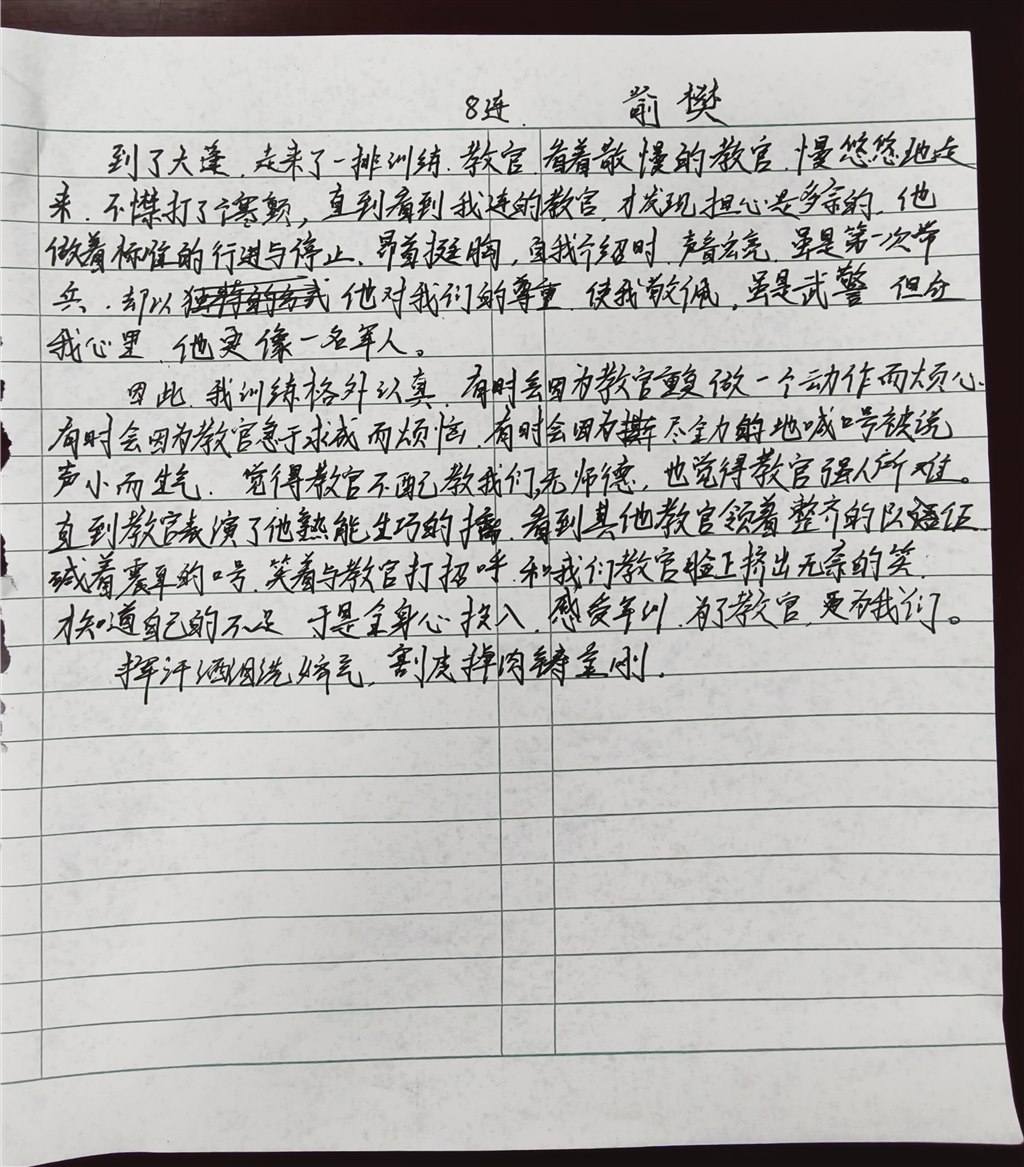 8连 俞樊
到了大蓬,走来了一排训练教官,看着散慢的教官,慢悠悠地走
来,不禁打了个寒颤,直到看到我连的教官,才发现担心是多余的,他
做着标准的行进与停止,昂首挺胸,自我介绍时,声音宏亮,虽是第一次带
兵,却以他对我们的尊重,使我敬佩,虽是武警,但在
我心里,他更像一名军人。
因此,我训练格外认真,有时会因为教官重复做一个动作而烦心,
有时会因为教官急于求成而烦恼,有时会因为撕尽全力的地喊口号被说
声小而生气,觉得教官不配教我们,无师德,也觉得教官强人所难。
直到教官表演了他熟能生巧的,看到其他教官领着整齐的队伍
喊着震耳的口号,笑着与教官打招呼,和我们教官脸上挤出无奈的笑,
才知道自己的不足,于是全身心投入,感受军训,为了教官,更为我们。
挥汗洒泪洗娇气,割皮掉肉铸金刚。